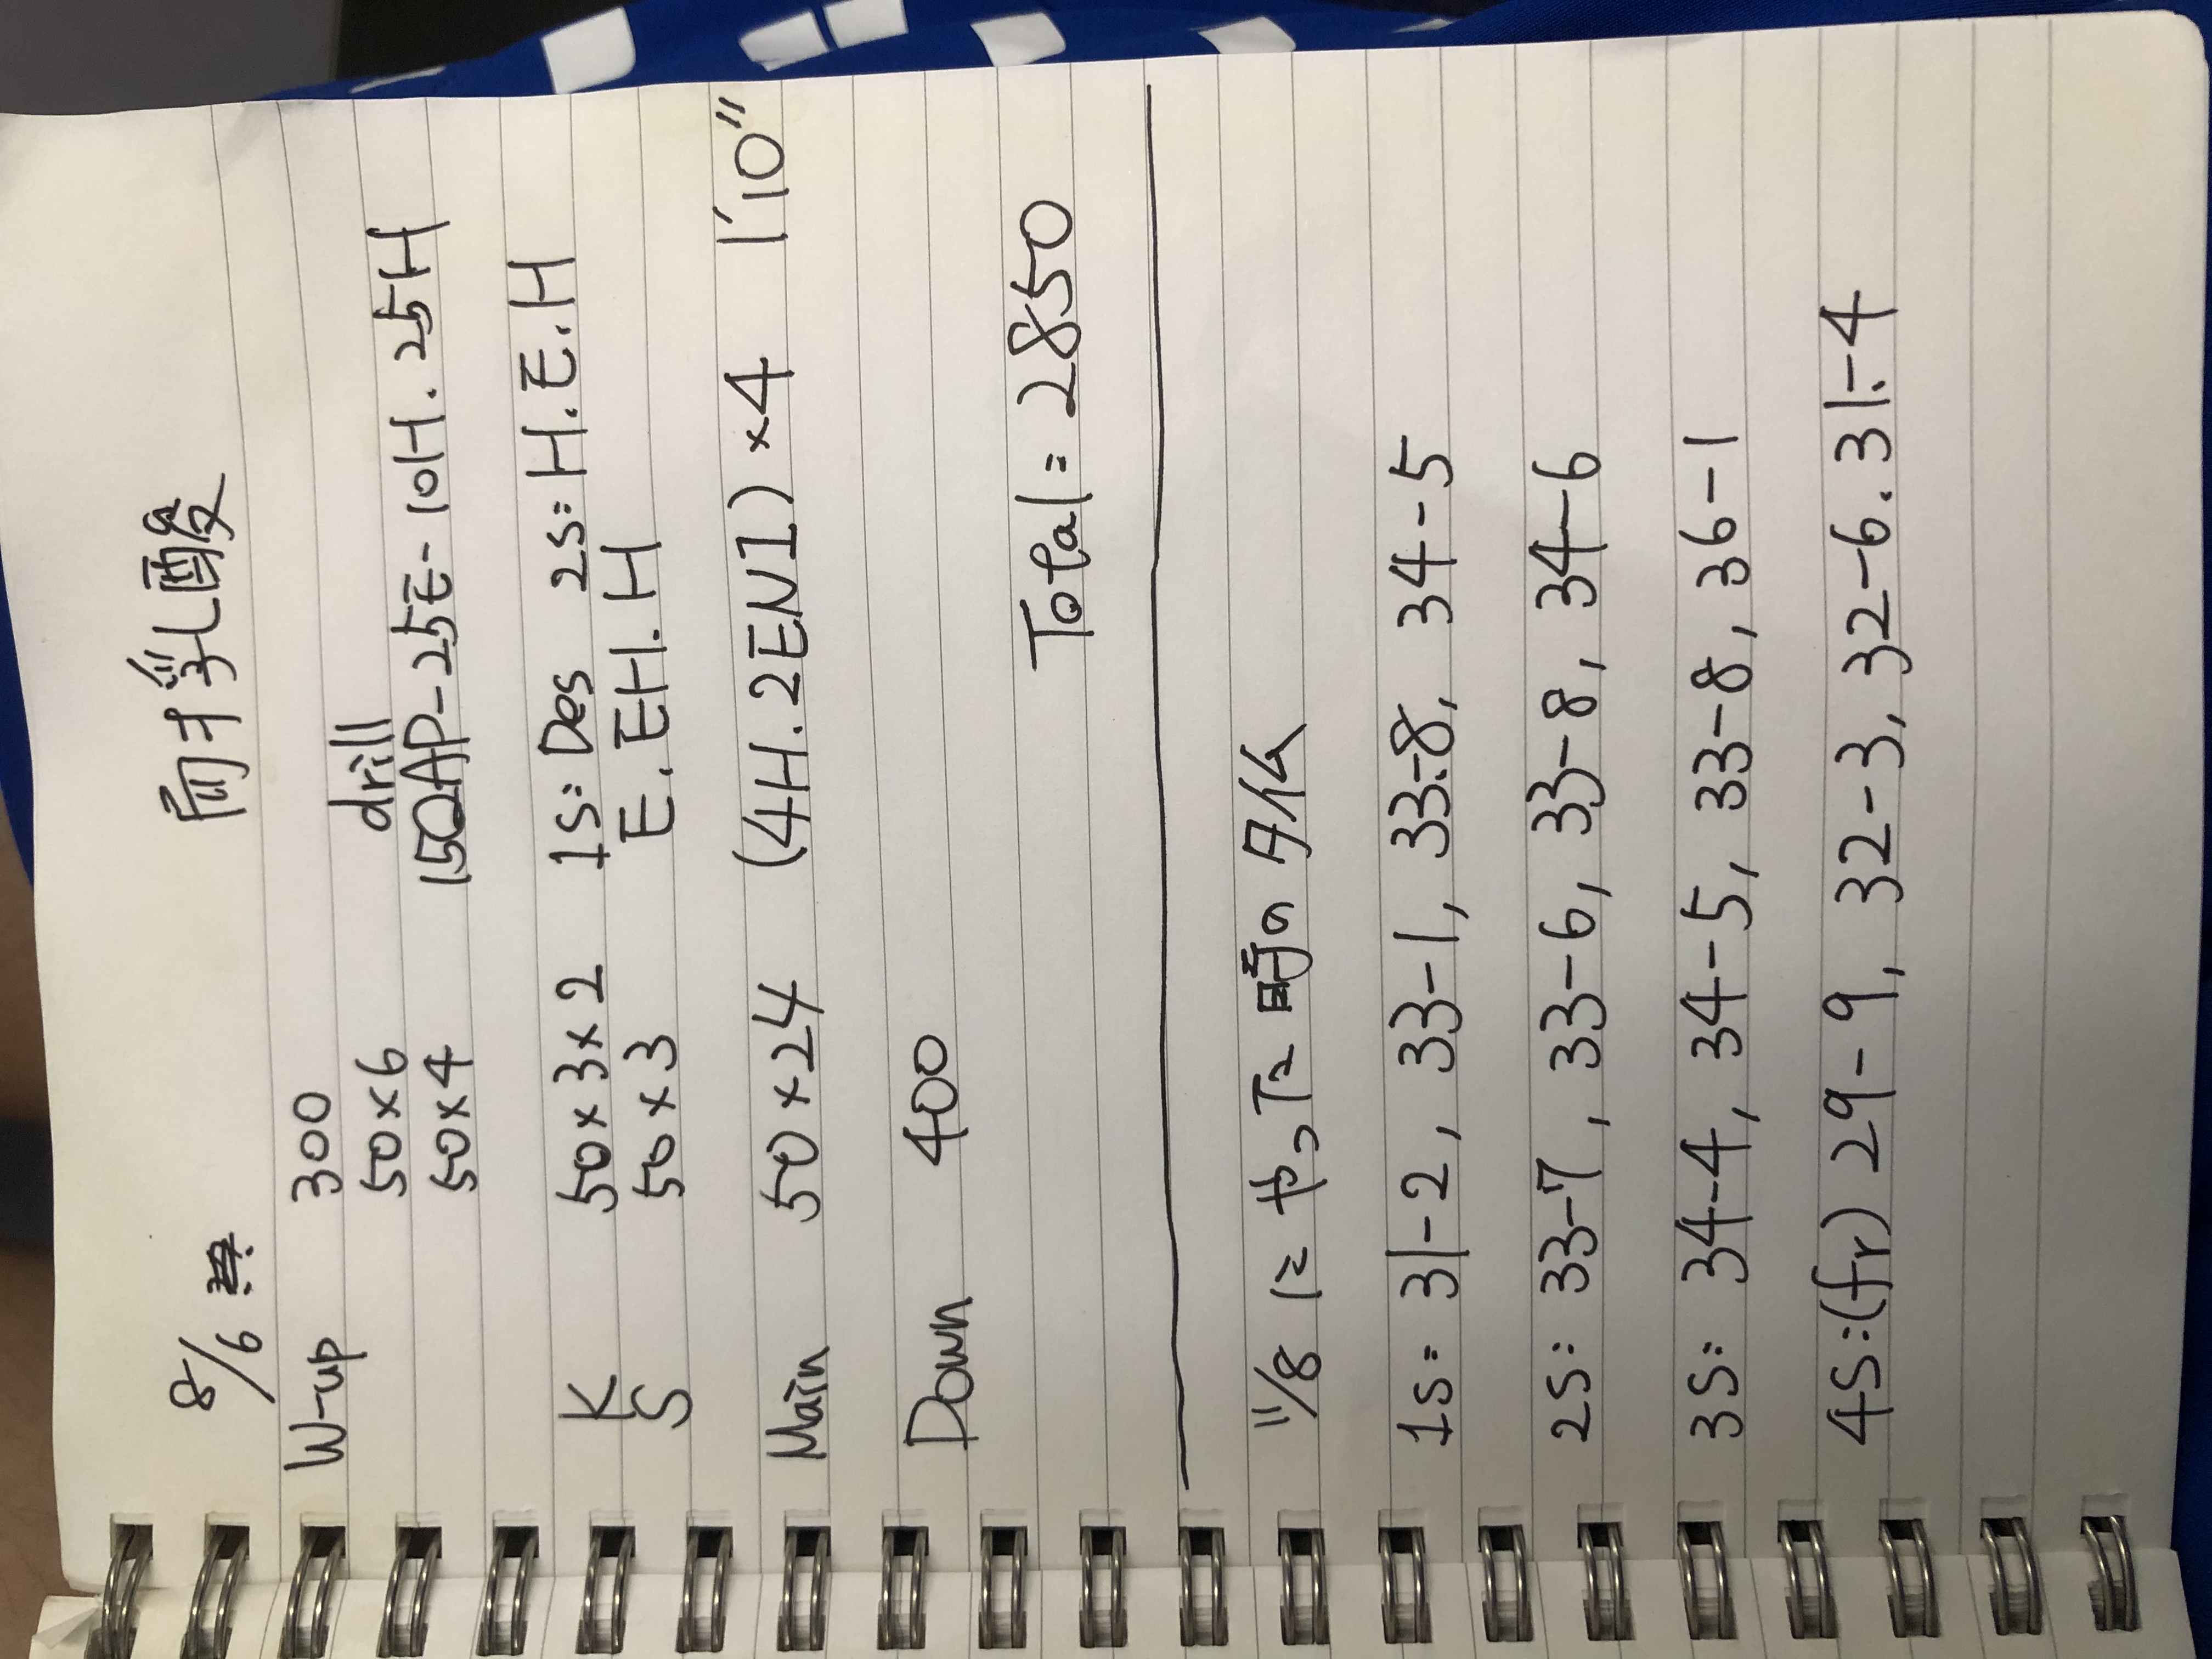 8/6 耐乳酸
W-up 300
50×6 drill
50×4 15QAP-25E-10H.25H
K 50×3×2 1S: Des 2S: H.E.H
S 50×3 E.EH.H
Main 50×24 (4H.2EN1)×4 1'10"
Down 400
Total = 2850
11/8 にやった時のタイム
1S: 31-2, 33-1, 33-8, 34-5
2S: 33-7, 33-6, 33-8, 34-6
3S: 34-4, 34-5, 33-8, 36-1
4S:(fr) 29-9, 32-3, 32-6. 31-4